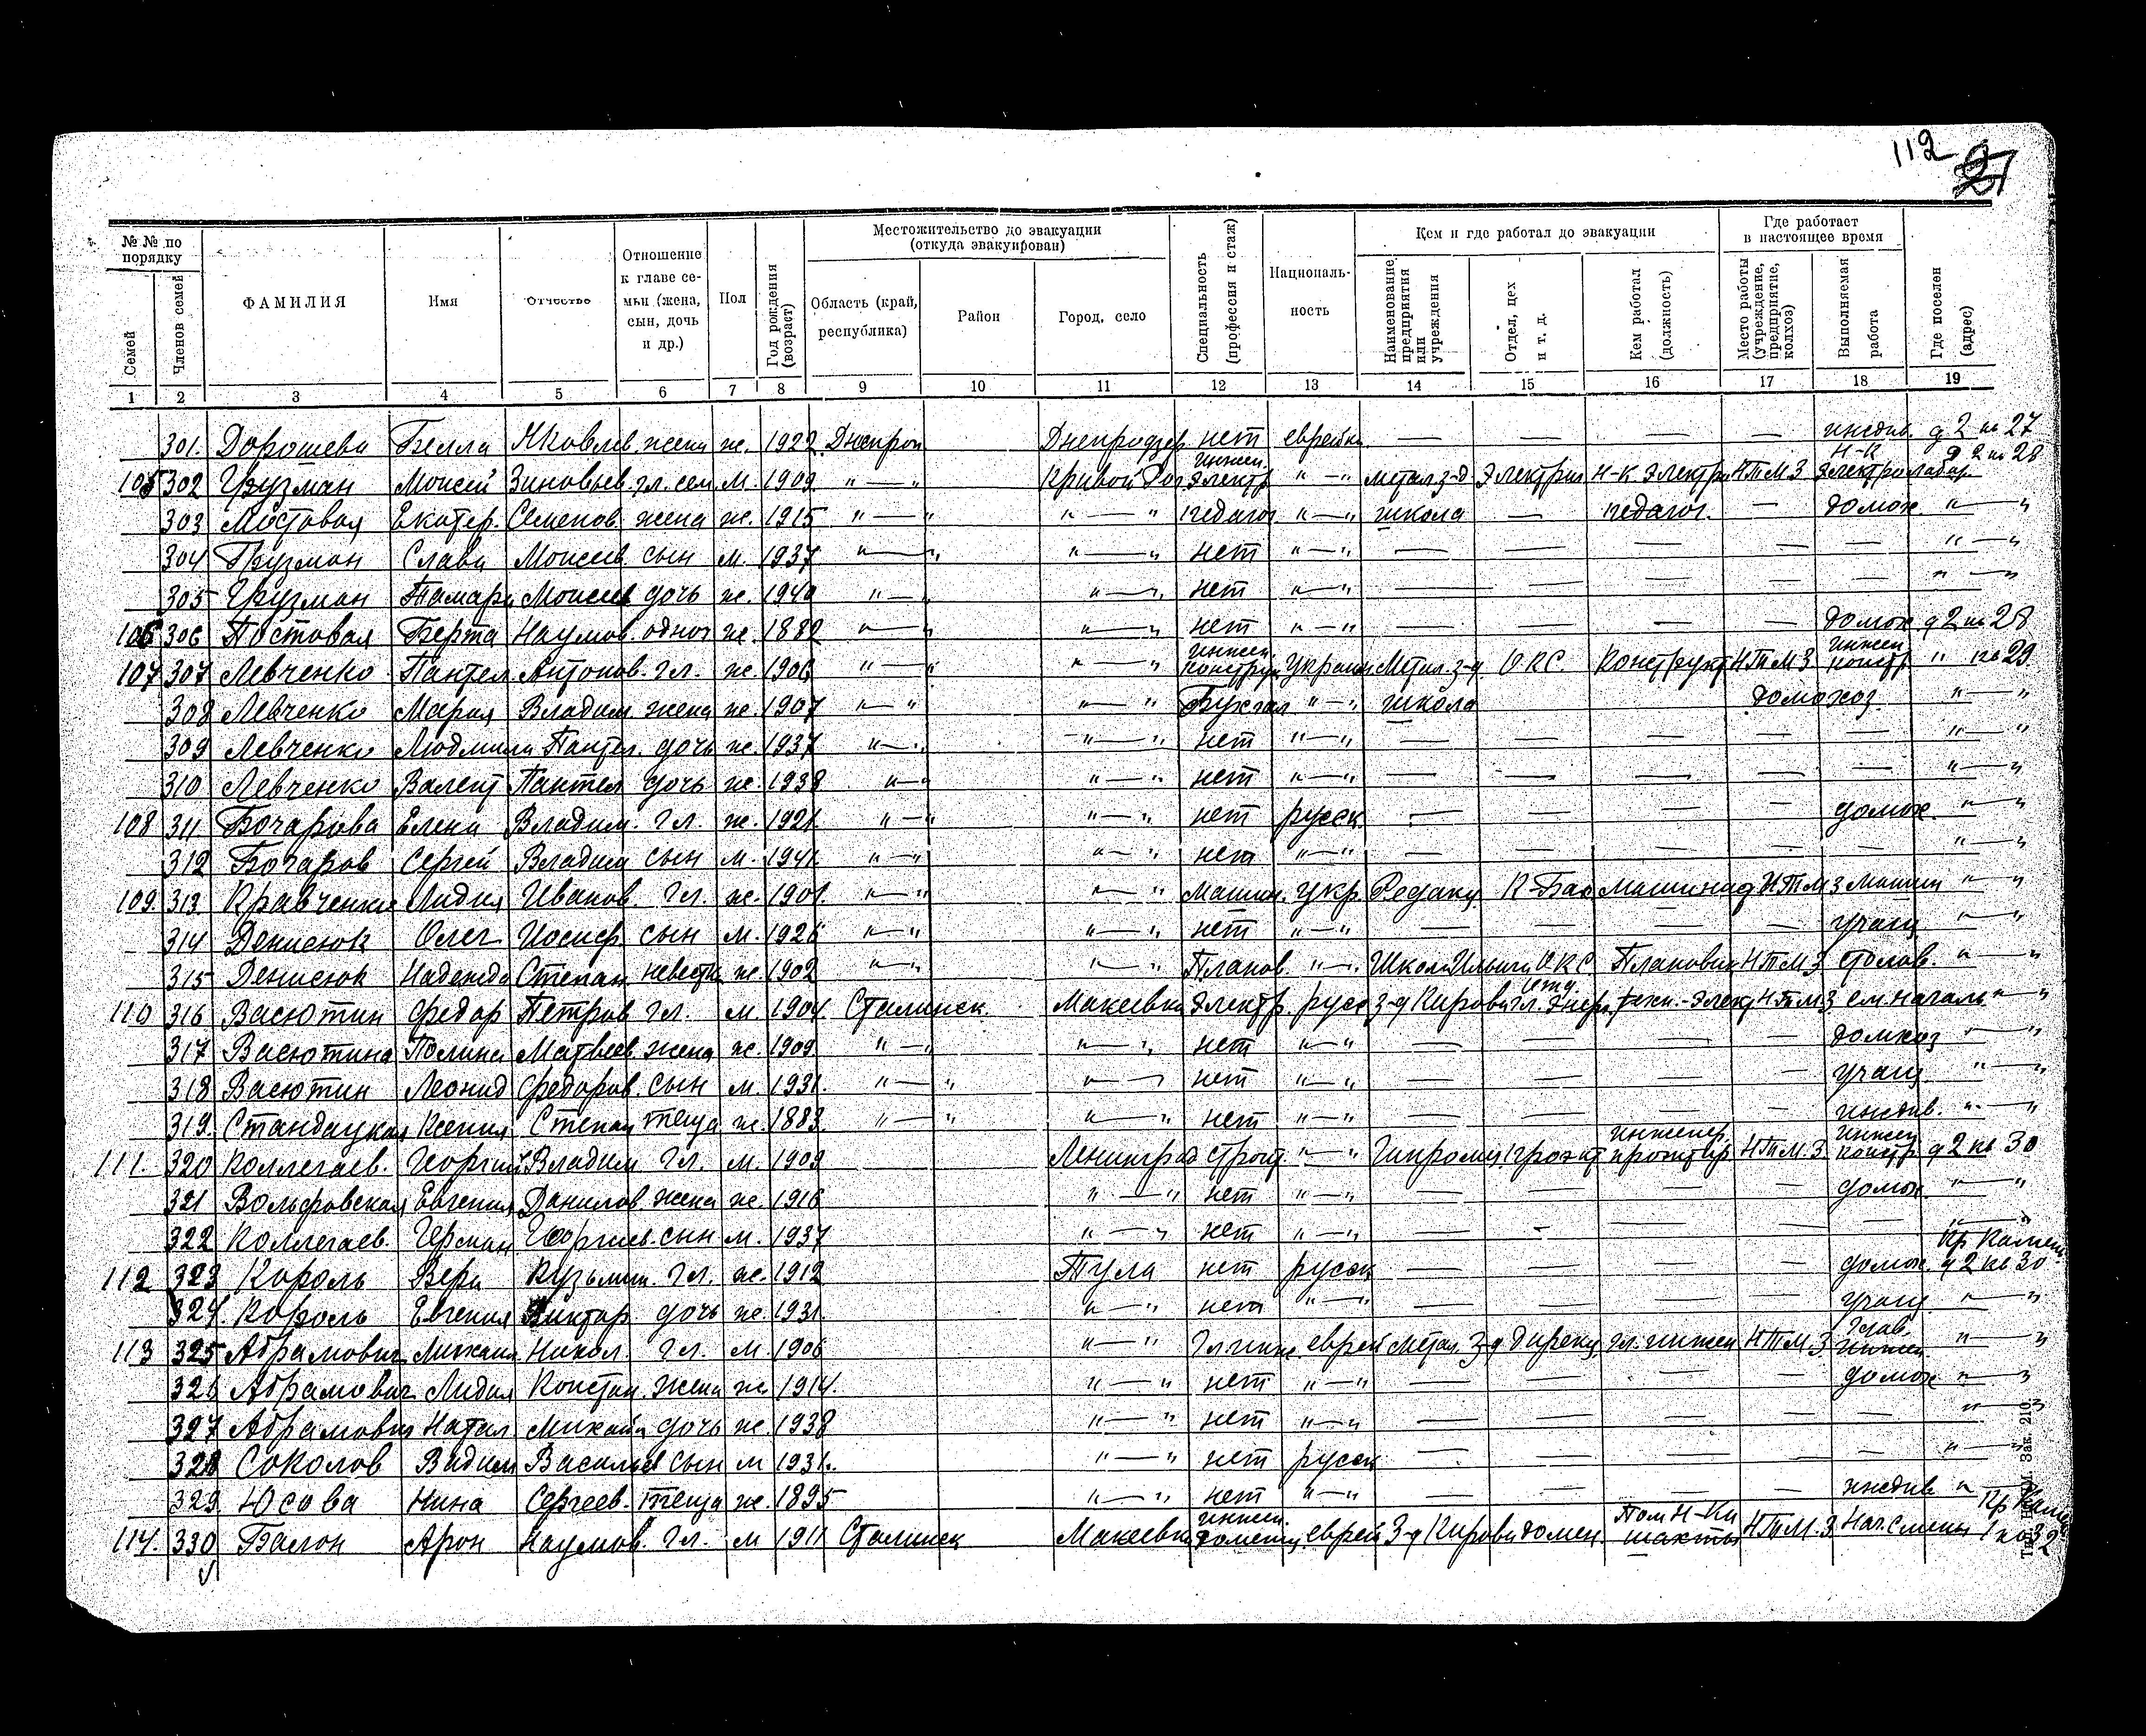 112 27
№ № по порядку
Семей
Членов семей
ФАМИЛИЯ
Имя
Отчество
Отношение к главе семьи (жена, сын, дочь и др.)
Пол
Год рождения (возраст)
Местожительство до эвакуации (откуда эвакуирован)
Область (край, республика)
Район
Город, село
Специальность (профессия и стаж)
Националь-ность
Кем и где работал до эвакуации
Наименование предприятия или учреждения
Отдел, цех и т. д.
Кем работал (должность)
Где работает в настоящее время
Место работы (учреждение, предприятие, колхоз)
Выполняемая работа
Где поселен (адрес)
1 2 3 4 5 6 7 8 9 10 11 12 13 14 15 16 17 18 19
301. Дорошева Белла Яковлев. жена ж. 1922 Днепроп Днепродзер нет еврейка — — — — иждив. д 2 кв 27
105 302 Грузман Моисей Зиновьев. гл. сем. М. 1909 " — " Кривой Рог инжен. электр " — " метал. з-д Электрич Н-к Электри НТМЗ Н-К Электролабор. д 2 кв 28
303 Мостовая Екатер. Семенов. жена ж. 1915 " — " " — " педагог " — " школа — педагог. — домох. " — "
304 Грузман Слава Моисеев. сын м. 1937 " — " " — " нет " — " — — — — — " — "
305 Грузман Тамара Моисеев дочь ж. 1940 " — " " — " нет " — " — — — — — " — "
106 306 Постовая Берта Наумов. одноч ж. 1882 " — " " — " нет " — " — — — — домох д 2 кв 28
107 307 Левченко Пантел Антонов. гл. ж. 1906 " — " " — " инжен. конструк Украин Метал. з-д О.К.С. Конструкт НТМЗ инжен констр. " кв 29
308 Левченко Мария Владим. жена ж. 1907 " — " " — " Бухгал " — " школа домохоз. " — "
309 Левченко Людмила Пантел. дочь ж. 1937 " — " " — " нет " — " — — — — — " — "
310 Левченко Валент Пантел дочь ж. 1938 " — " " — " нет " — " — — — — — " — "
108 311 Бочарова Елена Владим. Гл. ж. 1921 " — " " — " нет русск. — — — — домох. " — "
312 Бочаров Сергей Владим сын м. 1941 " — " " — " нет " — " — — — — — " — "
109. 313. Кравченко Лидия Иванов. Гл. ж. 1901. " — " " — " Машин. укр. Редакц. машин НТМЗ Машин " — "
314 Денисюк Олег Иосиф сын м. 1926 " — " " — " нет " — " — — — — учащ " — "
315 Денисюк Надежда Степан невестка ж. 1902 " — " " — " Планов. " — " О.К.С Плановик НТМЗ столов. " — "
110 316 Васютин Федор Петров Гл. м. 1904 Сталинск. Макеевка Электр. русс з-д Кирова НТМЗ " — "
317 Васютина Полина Матвеев. жена ж. 1909 " — " " — " нет " — " — — — — домхоз " — "
318 Васютин Леонид Федоров. сын м. 1931. " — " " — " нет " — " — — — — учащ " — "
319. Стандацкая Ксения Степан теща ж. 1883. " — " " — " нет " — " — — — — иждив. " — "
111. 320 Коллегаев. Георгий Владим Гл. м. 1909 Ленинград строит. " — " Гипромез проект инженер. НТМ.З. инжен констр д 2 кв 30
321 Вольфовская Евгения Данилов. жена ж. 1916 " — " нет " — " — — — — домох. " — "
322 Коллегаев. Герман Георгиев. сын м. 1937 " — " нет " — " — — — — — " — "
112 323 Король Вера Кузьмин. Гл. ж. 1912 Тула нет русск — — — — домох. Кр Камен. д 2 кв 30
324. Король Евгения Виктор. дочь ж. 1931. " — " нет " — " — — — — учащ. " — "
113 325 Абрамович Михаил Никол. Гл. м 1906 " — " Гл инж. еврей метал. З-д дирекц. гл. инжен НТМ.З. Глав. инжен " — "
326 Абрамович Лидия Констан. жена ж 1914. " — " нет " — " — — — — домох " — "
327 Абрамович Натал Михайл дочь ж. 1938 " — " нет " — " — — — — — " — "
328 Соколов Вадим Васильев сын м 1931. " — " нет русск — — — — — " — "
329. Юсова Нина Сергеев. теща ж. 1895 " — " нет " — " — — — — иждив "
114. 330 Балон Арон Наумов. Гл. м 1911 Сталинск Макеевка инжен. доменщ еврей З-д Кирова домен. Пом Н-ка шахты НТМ.З Нач. смены Кр Камен
Зак. 210.